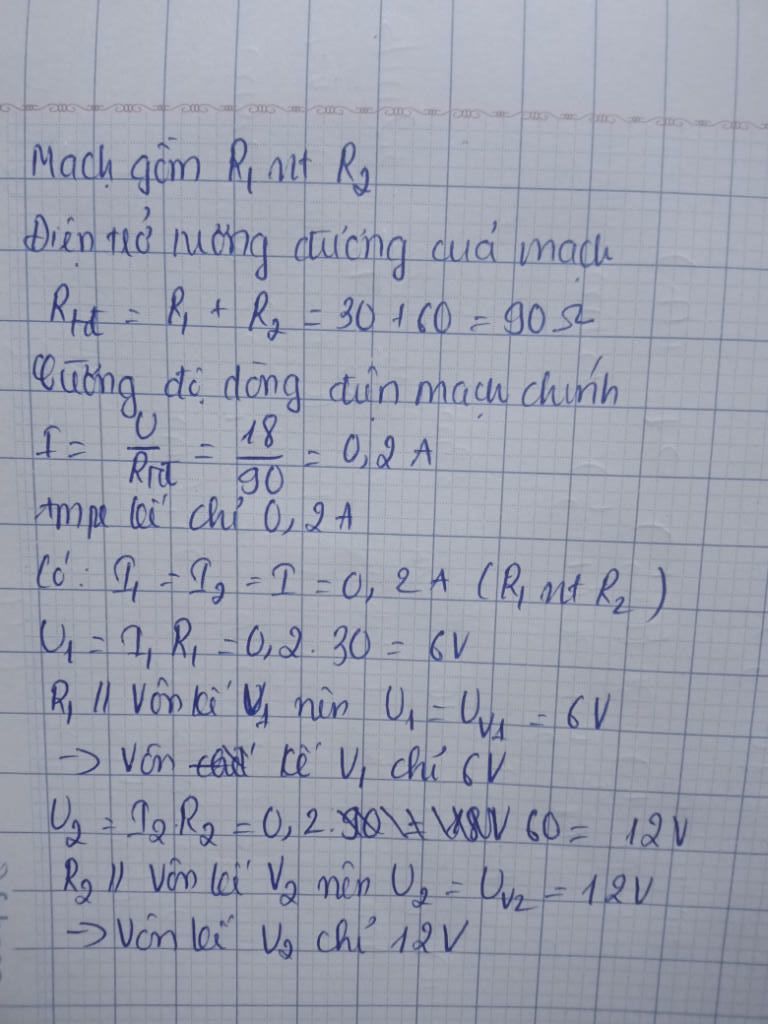 Mạch gồm R₁ nt R₂
Điện trở tương đương của mạch
Rtđ = R₁ + R₂ = 30 + 60 = 90 Ω
Cường độ dòng điện mạch chính
I = U/Rtđ = 18/90 = 0,2 A
Ampe kế chỉ 0,2A
Có: I₁ = I₂ = I = 0,2A (R₁ nt R₂)
U₁ = I₁ R₁ = 0,2.30 = 6V
R₁ // Vôn kế V₁ nên U₁ = Uv₁ = 6V
→ Vôn kế V₁ chỉ 6V
U₂ = I₂.R₂ = 0,2. 60 = 12V
R₂ // Vôn kế V₂ nên U₂ = Uv₂ = 12V
→ Vôn kế V₂ chỉ 12V